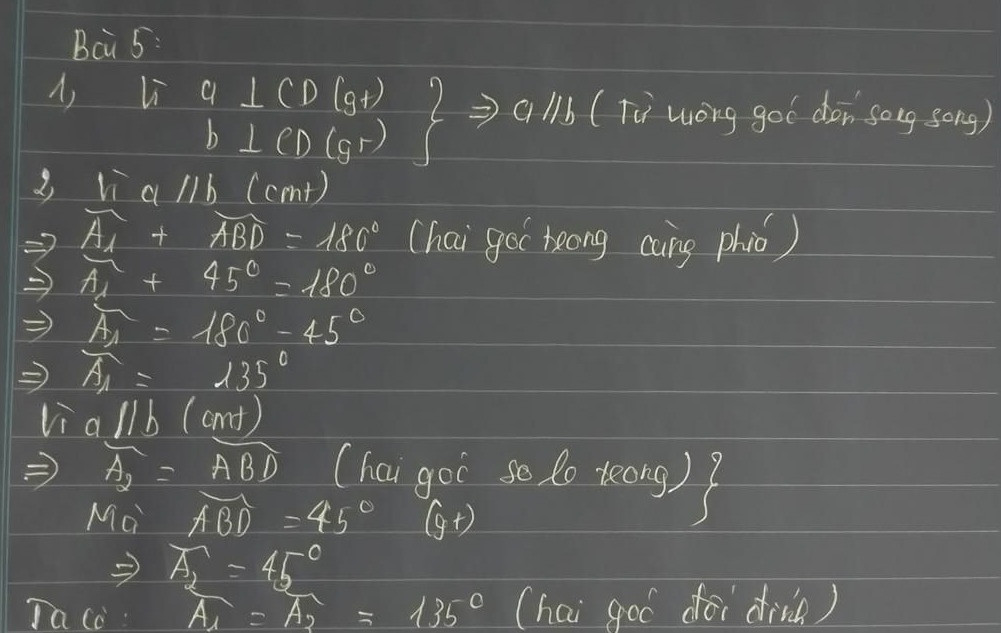 Bài 5:
1, Vì a ⊥ CD (gt)
b ⊥ CD (gt) } ⇒ a//b (Từ vuông góc đến song song)
2, Vì a//b (cmt)
⇒ Â₁ + ABD̂ = 180° (hai góc trong cùng phía)
⇒ Â₁ + 45° = 180°
⇒ Â₁ = 180° - 45°
⇒ Â₁ = 135°
Vì a//b (cmt)
⇒ Â₂ = ABD̂ (hai góc so le trong) }
Mà ABD̂ = 45° (gt)
⇒ Â₂ = 45°
Ta có: Â₁ = Â₃ = 135° (hai góc đối đỉnh)